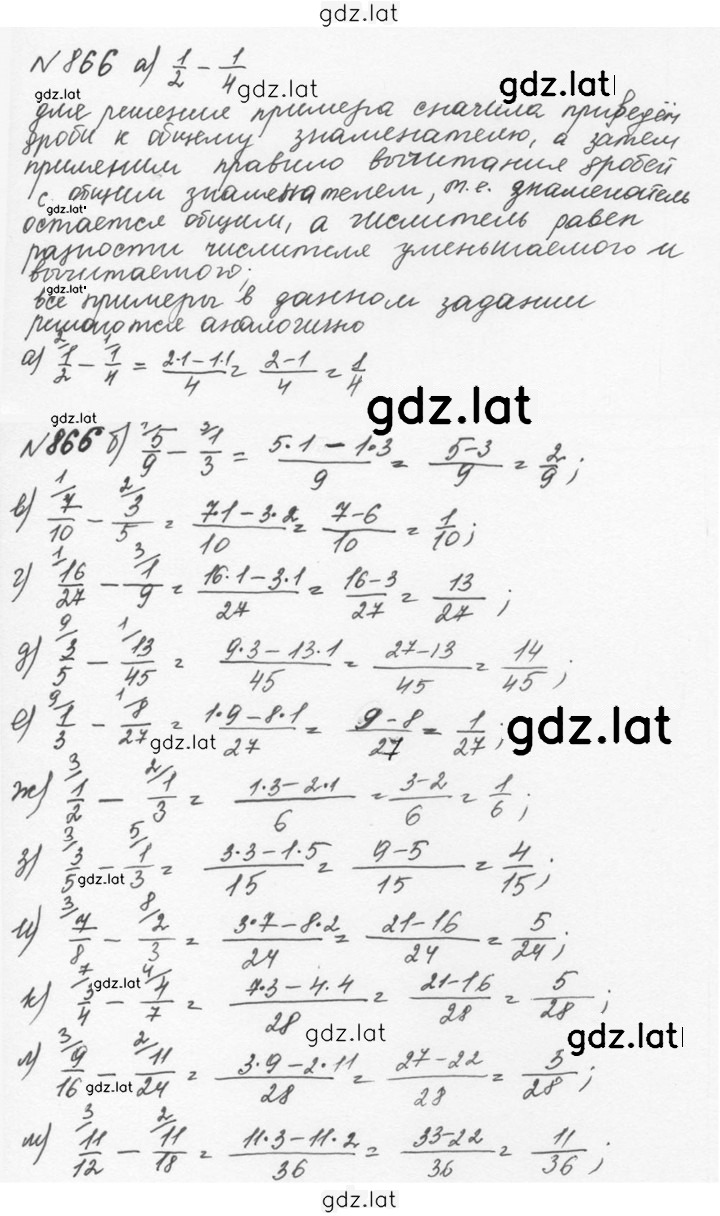 gdz.lat
№866 а) 1/2 - 1/4
gdz.lat
gdz.lat
для решения примера сначала приведём
дроби к общему знаменателю, а затем
применим правило вычитания дробей
с общим знаменателем, т.е. знаменатель
gdz.lat
остается общим, а числитель равен
разности числителя уменьшаемого и
вычитаемого;
gdz.lat
все примеры в данном задании
решаются аналогично
а) 2/ 1/2 - 1/ 1/4 = (2·1-1·1)/4 = (2-1)/4 = 1/4
gdz.lat
gdz.lat
№866 б) 1/ 5/9 - 3/ 1/3 = (5·1-1·3)/9 = (5-3)/9 = 2/9;
в) 1/ 7/10 - 2/ 3/5 = (7·1-3·2)/10 = (7-6)/10 = 1/10;
г) 1/ 16/27 - 3/ 1/9 = (16·1-3·1)/27 = (16-3)/27 = 13/27;
д) 9/ 3/5 - 1/ 13/45 = (9·3-13·1)/45 = (27-13)/45 = 14/45;
е) 9/ 1/3 - 1/ 8/27 = (1·9-8·1)/27 = (9-8)/27 = 1/27;
gdz.lat
gdz.lat
ж) 3/ 1/2 - 2/ 1/3 = (1·3-2·1)/6 = (3-2)/6 = 1/6;
з) 3/ 3/5 - 5/ 1/3 = (3·3-1·5)/15 = (9-5)/15 = 4/15;
gdz.lat
и) 3/ 7/8 - 8/ 2/3 = (3·7-8·2)/24 = (21-16)/24 = 5/24;
к) 7/ 3/4 - 4/ 4/7 = (7·3-4·4)/28 = (21-16)/28 = 5/28;
gdz.lat
gdz.lat
gdz.lat
л) 3/ 9/16 - 2/ 11/24 = (3·9-2·11)/28 = (27-22)/28 = 3/28;
gdz.lat
м) 3/ 11/12 - 2/ 11/18 = (11·3-11·2)/36 = (33-22)/36 = 11/36;
gdz.lat